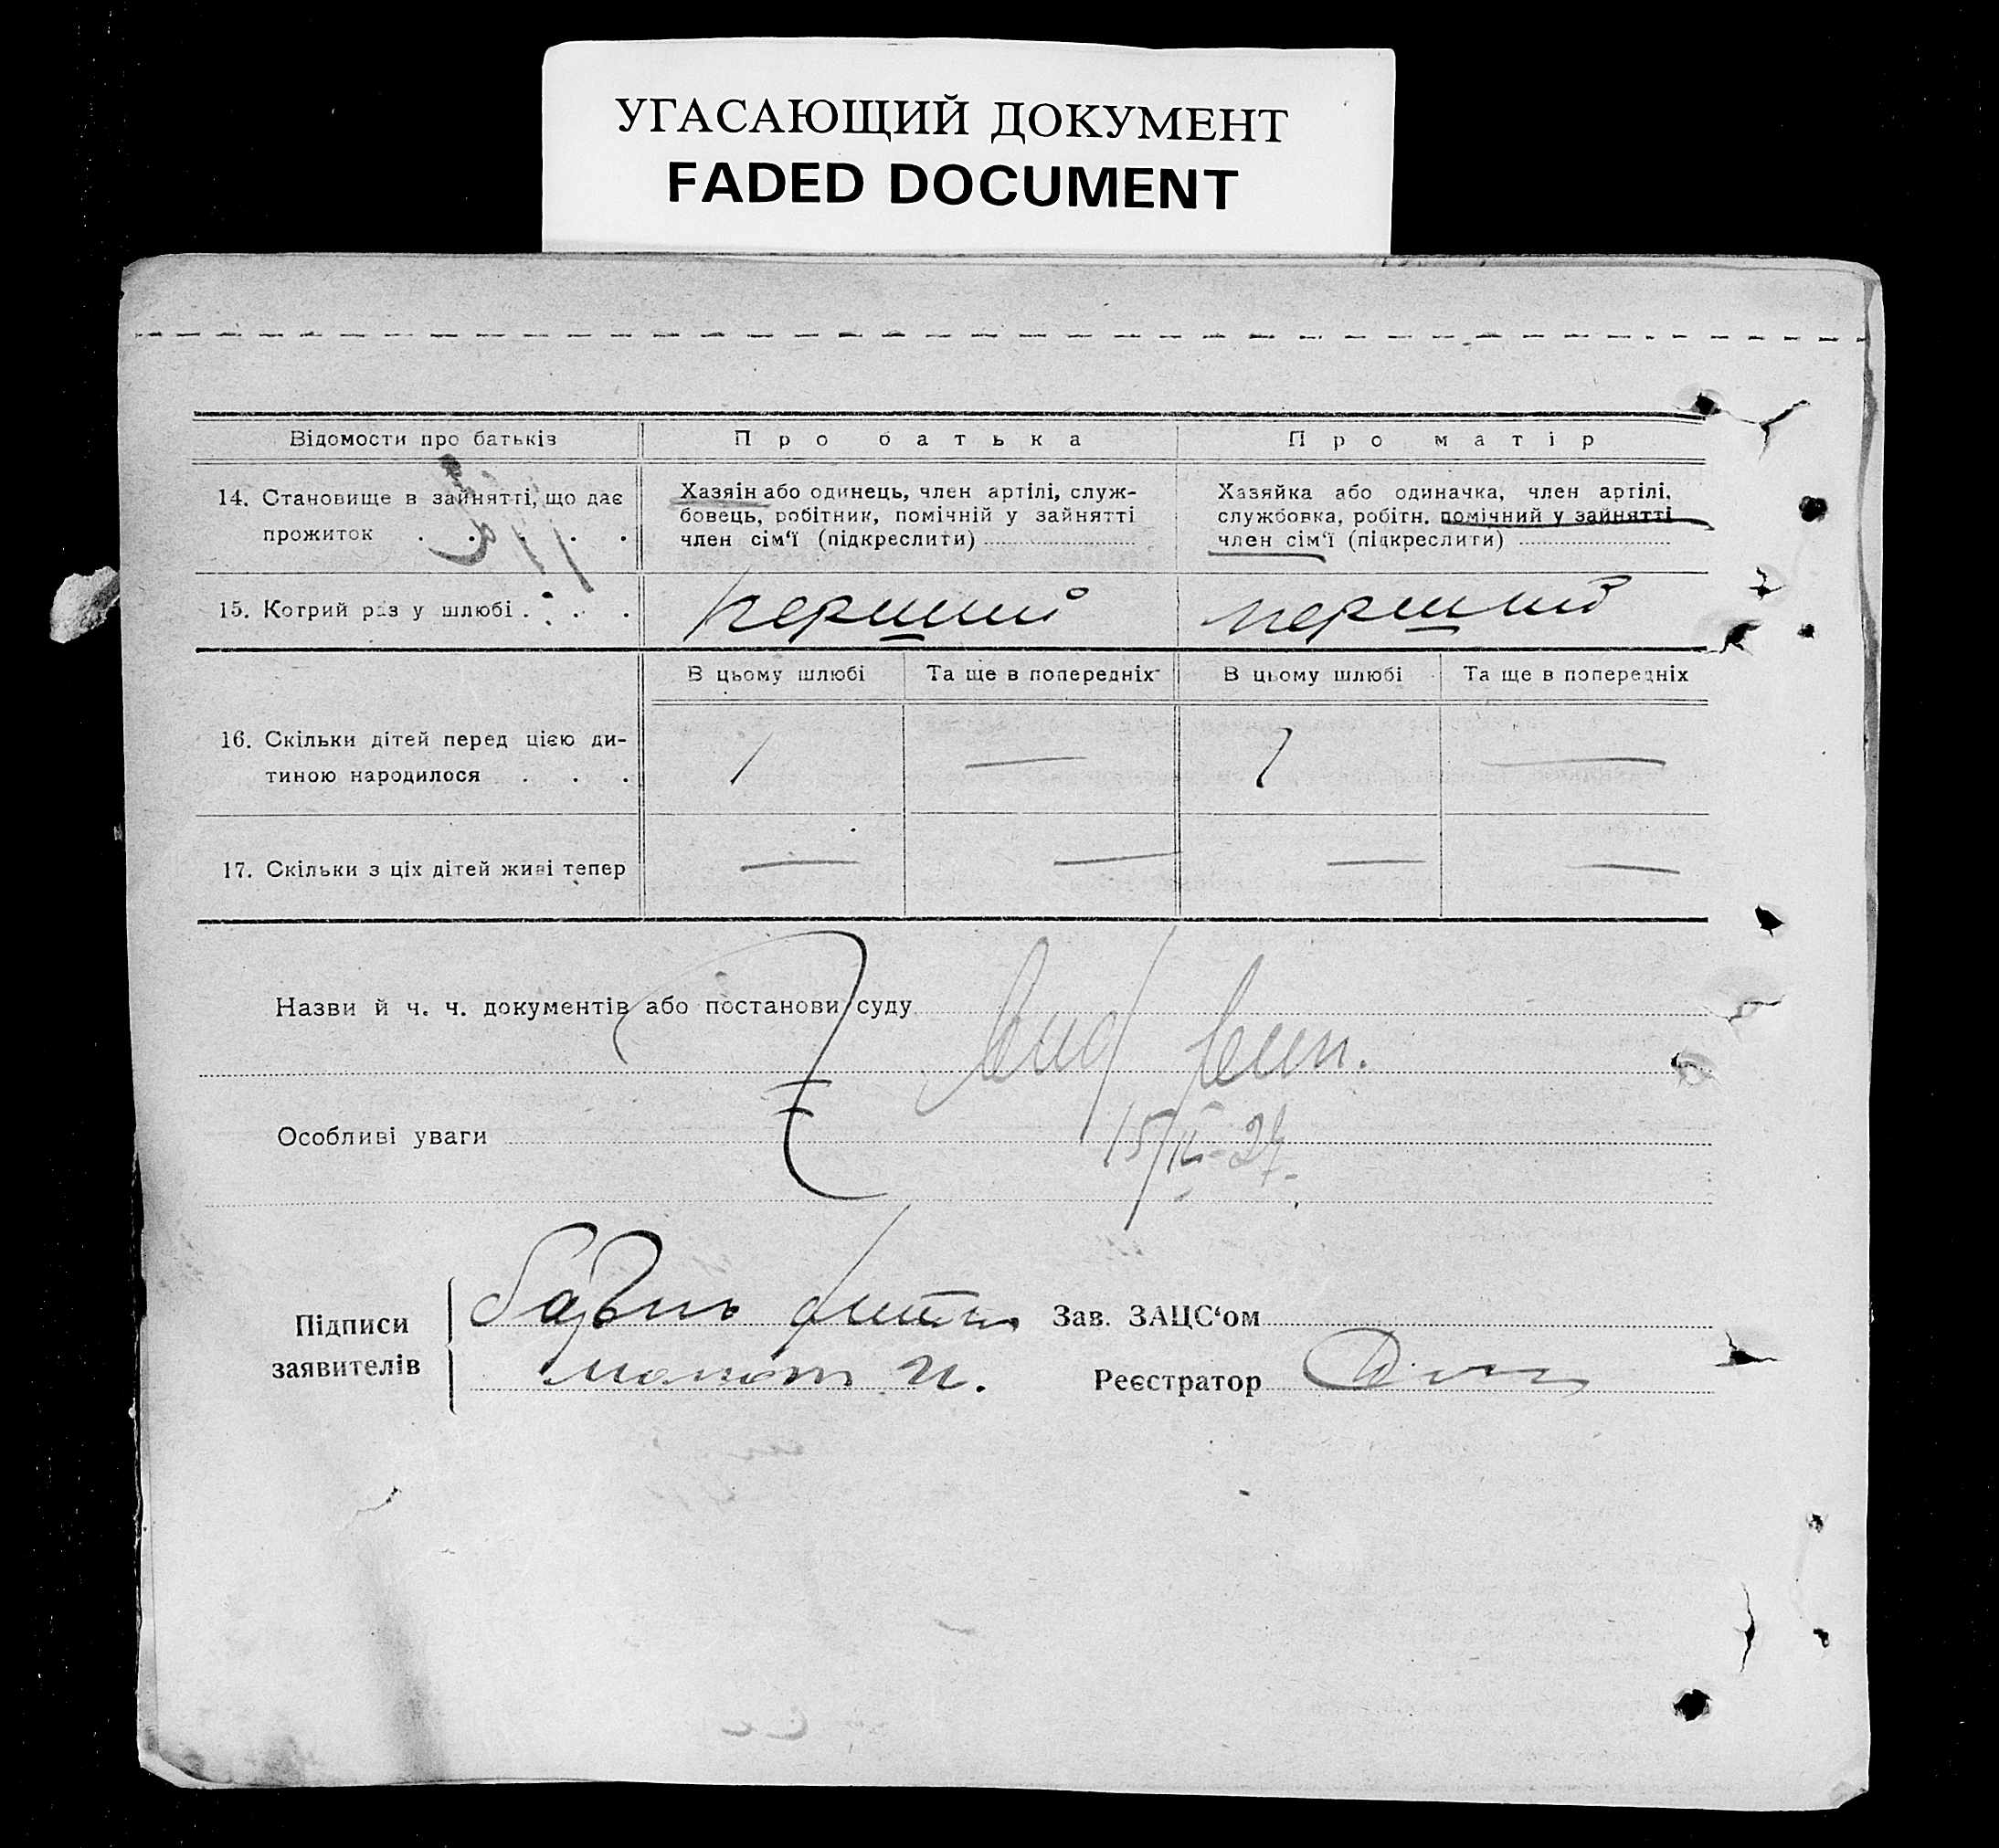 УГАСАЮЩИЙ ДОКУМЕНТ
FADED DOCUMENT
Відомости про батьків
Про батька
Про матір
14. Становище в зайнятті, що дає
прожиток . . . . .
Хазяїн або одинець, член артілі, служ-
бовець, робітник, помічній у зайнятті
член сім'ї (підкреслити)
Хазяйка або одиначка, член артілі,
службовка, робітн. помічний у зайнятті
член сім'ї (підкреслити)
15. Котрий раз у шлюбі . . . .
перший
перший
В цьому шлюбі
Та ще в попередніх
В цьому шлюбі
Та ще в попередніх
16. Скільки дітей перед цією ди-
тиною народилося . . .
1
—
1
—
17. Скільки з ціх дітей живі тепер
—
—
—
—
Назви й ч. ч. документів або постанови суду
Особливі уваги
Підписи
заявителів
Зав. ЗАЦС'ом
Реєстратор